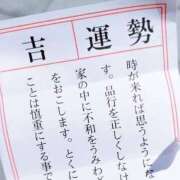 吉 運 勢
時が来れば思うようにな
す。品行を正しくしなけ
家の中に不和をうみわ
をおこします。とくに
ことは慎重にする事で